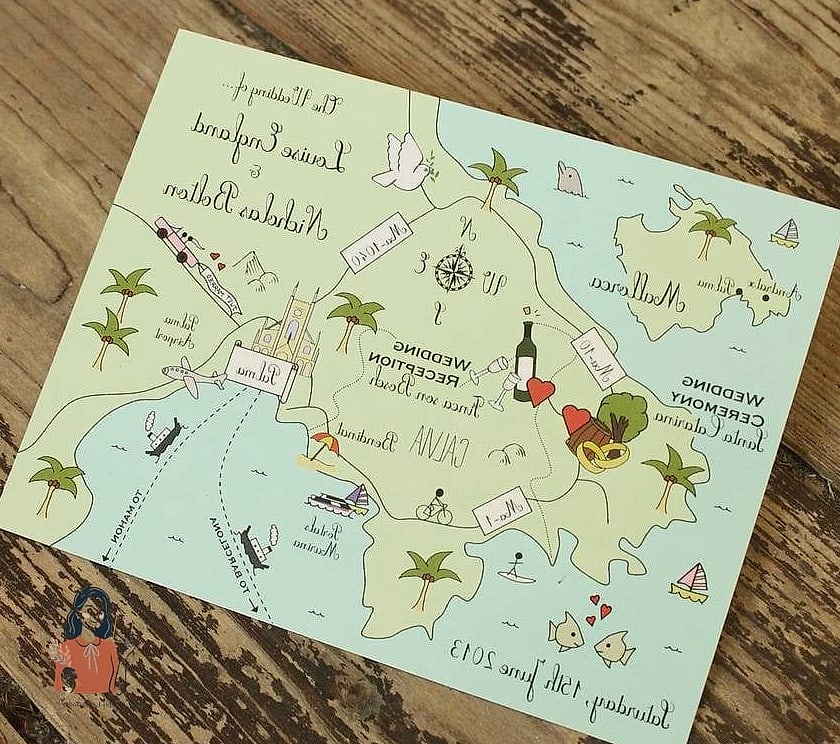 The Wedding of...
Louise England
&
Nicholas Bolton
Ma-1040
N
E
W
S
Mallorca
Palma
Andratx
JUST MARRIED
Palma
Airport
Palma
WEDDING
RECEPTION
Finca son Bosch
Ma-10
WEDDING
CEREMONY
Santa Catarina
CALVIA
Bendinat
Ma-1
Portals
Marina
TO MAHON
TO BARCELONA
Saturday, 15th June 2013